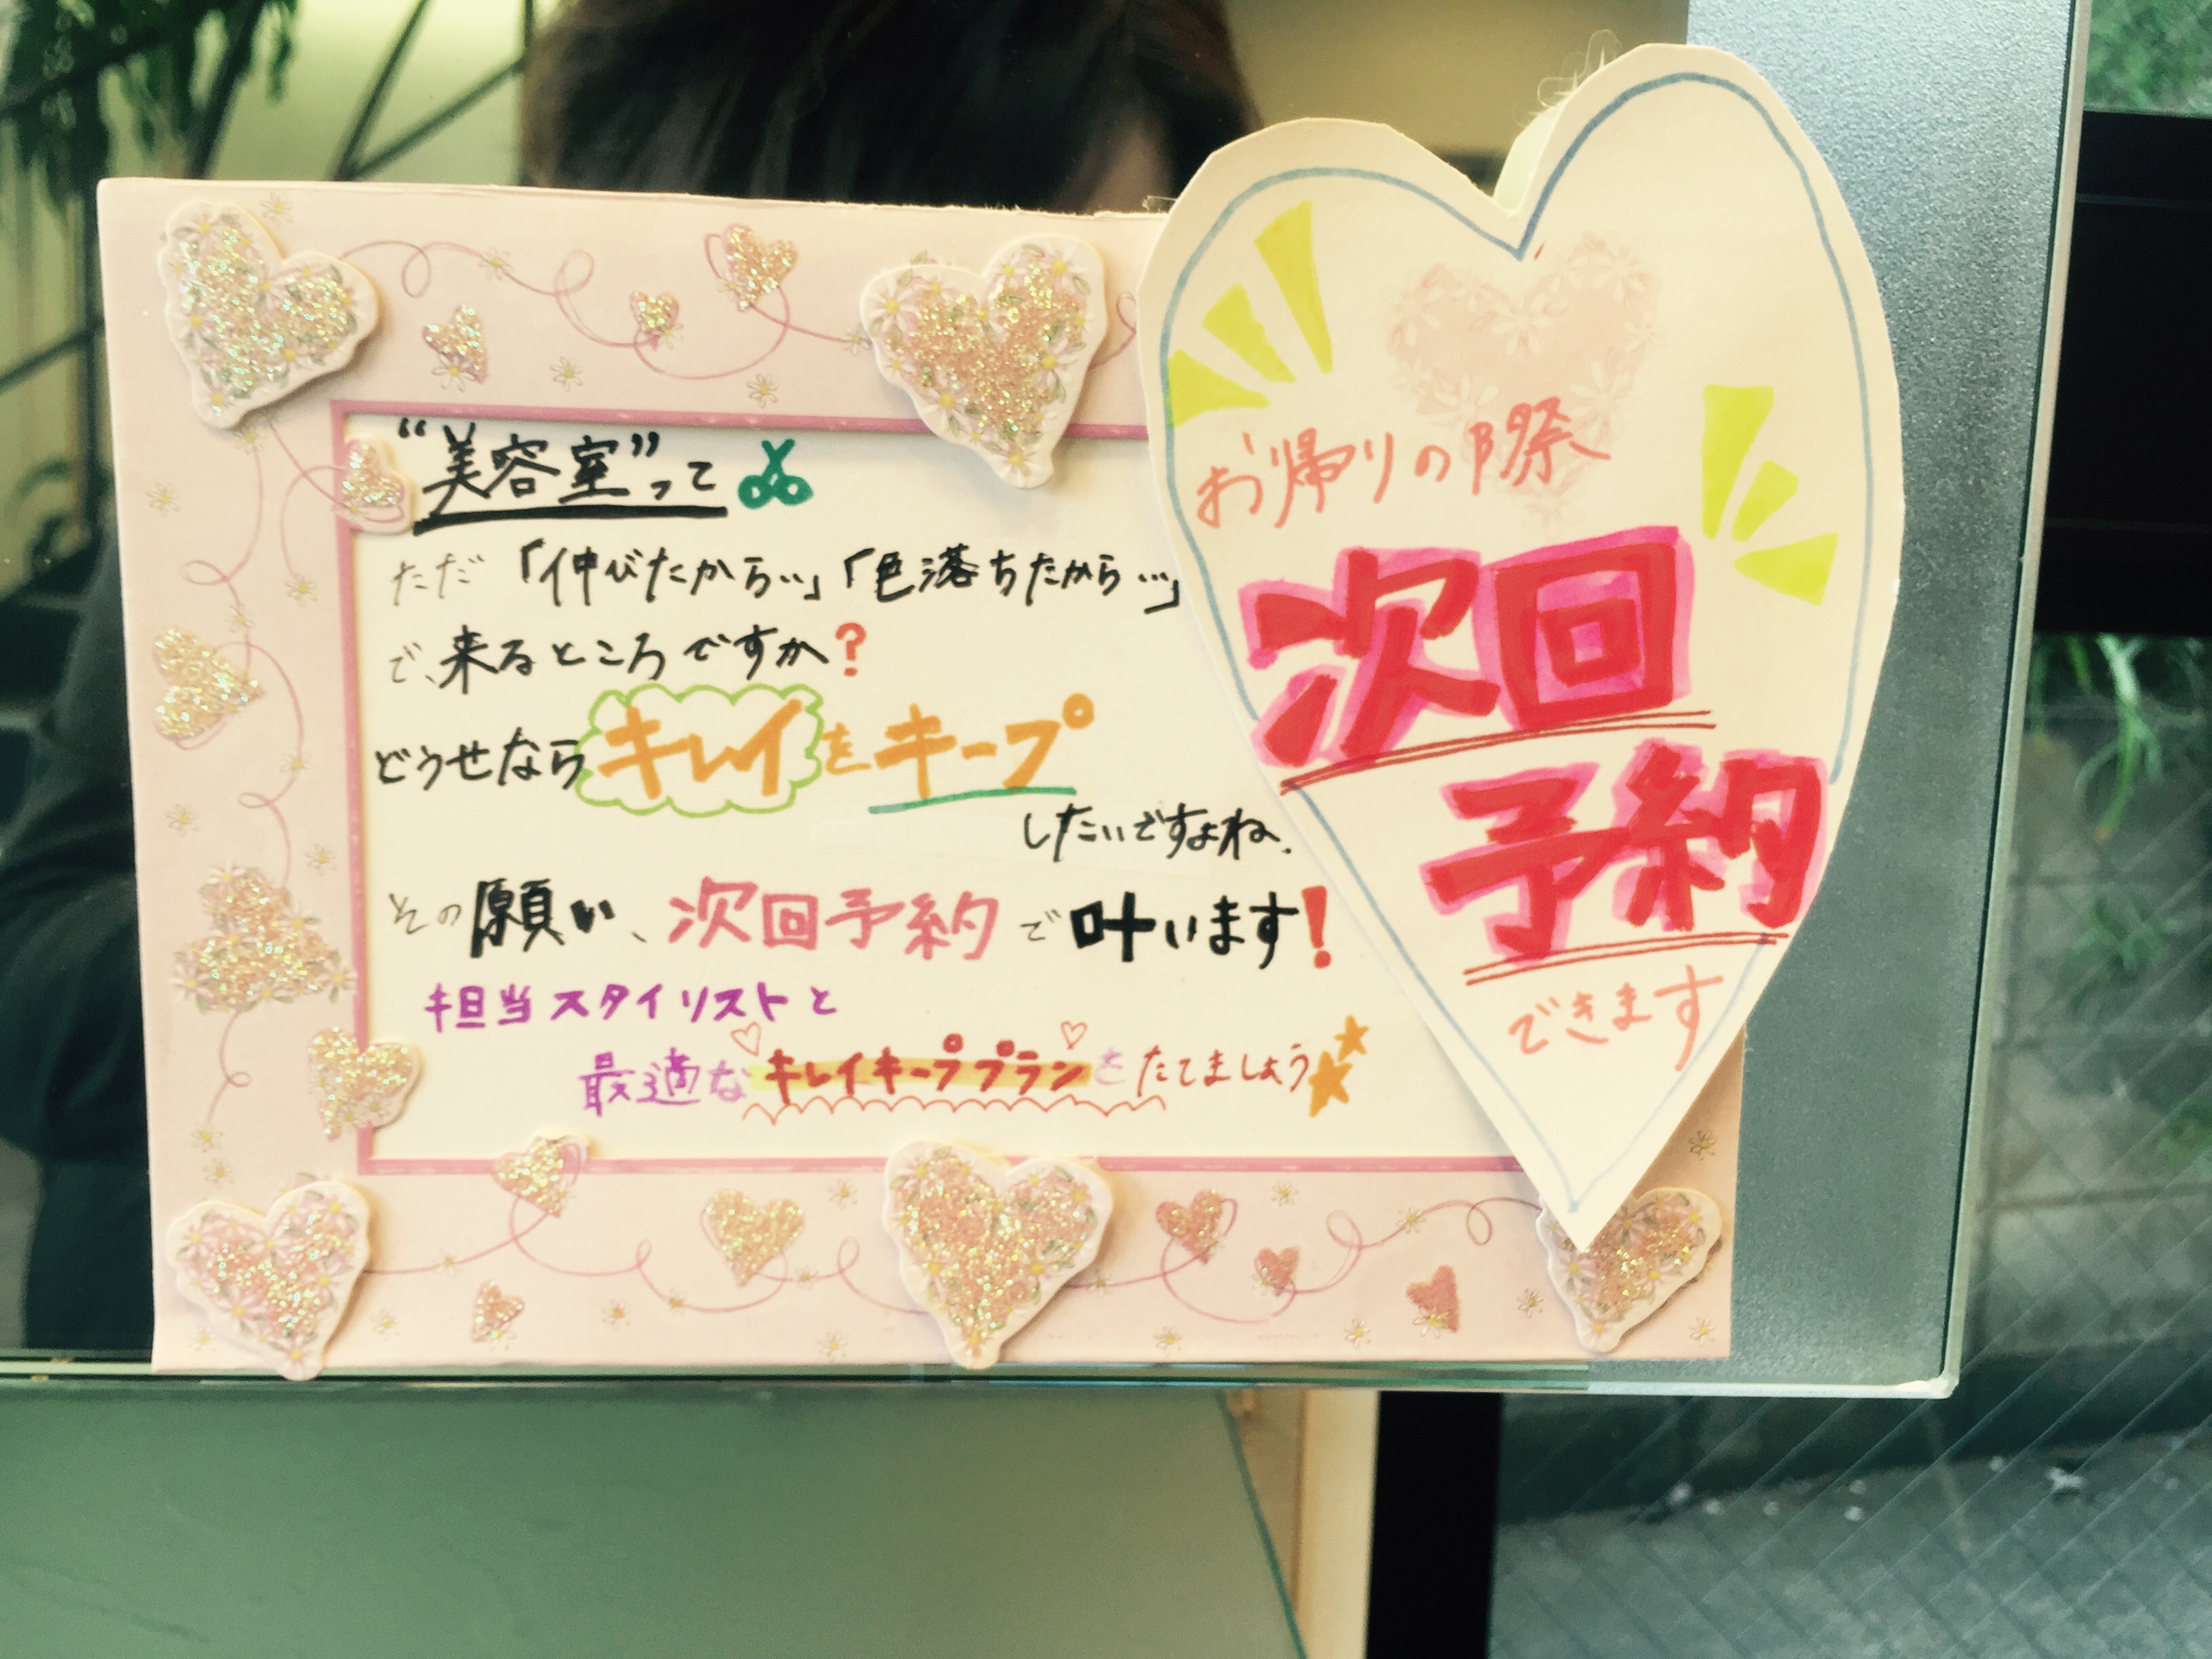 “美容室”って
ただ「伸びたから…」「色落ちたから…」
で、来るところですか?
どうせならキレイをキープ
したいですよね.
その願い、次回予約で叶います!
担当スタイリストと
最適なキレイキーププランをたてましょう
お帰りの際
次回
予約
できます